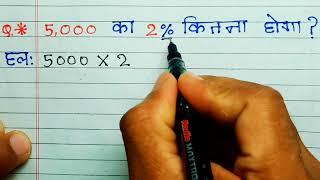 Q.* 5,000 का 2% कितना होगा ?
हल: 5000 X 2